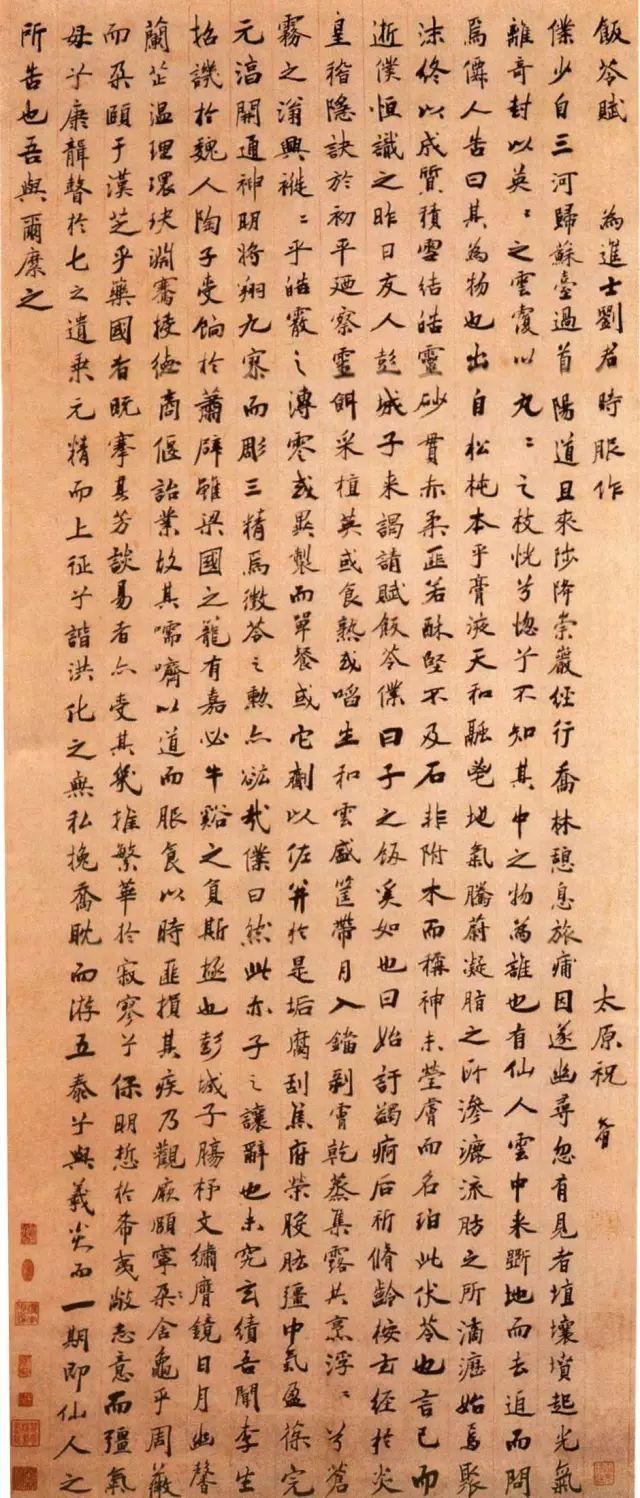 飯苓賦 為進士劉君時服作 太原祝
僕少自三河歸蘇臺過首陽道且來陟降崇巖經行喬林憩息旅痡因遂幽尋忽有見者埴壤墳起光氣
離奇封以英〻之雲覆以丸〻之枝恍兮惚兮不知其中之物為誰也有仙人雲中来斸地而去追而問
焉儒人告曰其為物也出自松杶本乎膏液天和融鬯地氣騰蔚凝脂之所滲漉流肪之所滴瀝始焉聚
沫終以成質積雪結皓靈砂貫赤柔匪若酥堅不及石非附木而稱神未瑩膚而名珀此伏苓也言已而
逝僕恒識之昨日友人彭城子来謁請賦飯苓僕曰子之飯奚如也曰始訏蠲痾后祈脩齡按玄經於炎
皇稽隱訣於初平廼察靈餌采植英或食熟或啗生和雲盛筐帶月入鐺剝膏乾蒸集露共烹浮〻兮蒼
霧之滃興褷〻乎皓霰之漙零或異製而單餐或它劑以佐并於是垢腐刮焦府榮股肱彊中氣盈葆完
元滈開通神明將翔九寥而彫三精焉微苓之勲亦㦿哉僕曰然此亦子之讓辭也未究玄績吾聞李生
招譏於魏人陶子受餉於蕭辟雖梁國之籠有嘉必牛谿之負斯極也彭城子腸杼文繡膺鏡日月幽馨
蘭芷温理環玦淵騫援德商偃詒業故其嚅嚌以道而服食以時匪損其疾乃觀厥頤寧朶舍龜乎周薇
而朶頤于漢芝乎藥國者既搴其芳談易者亦受其幾推繁華於寂寥兮保明悊於希夷敞志意而彊氣
母兮康韻聲於七之遺乘元精而上征兮諧洪化之無私挽喬耽而游五泰兮與羲炎而一期即仙人之
所告也吾與爾麋之